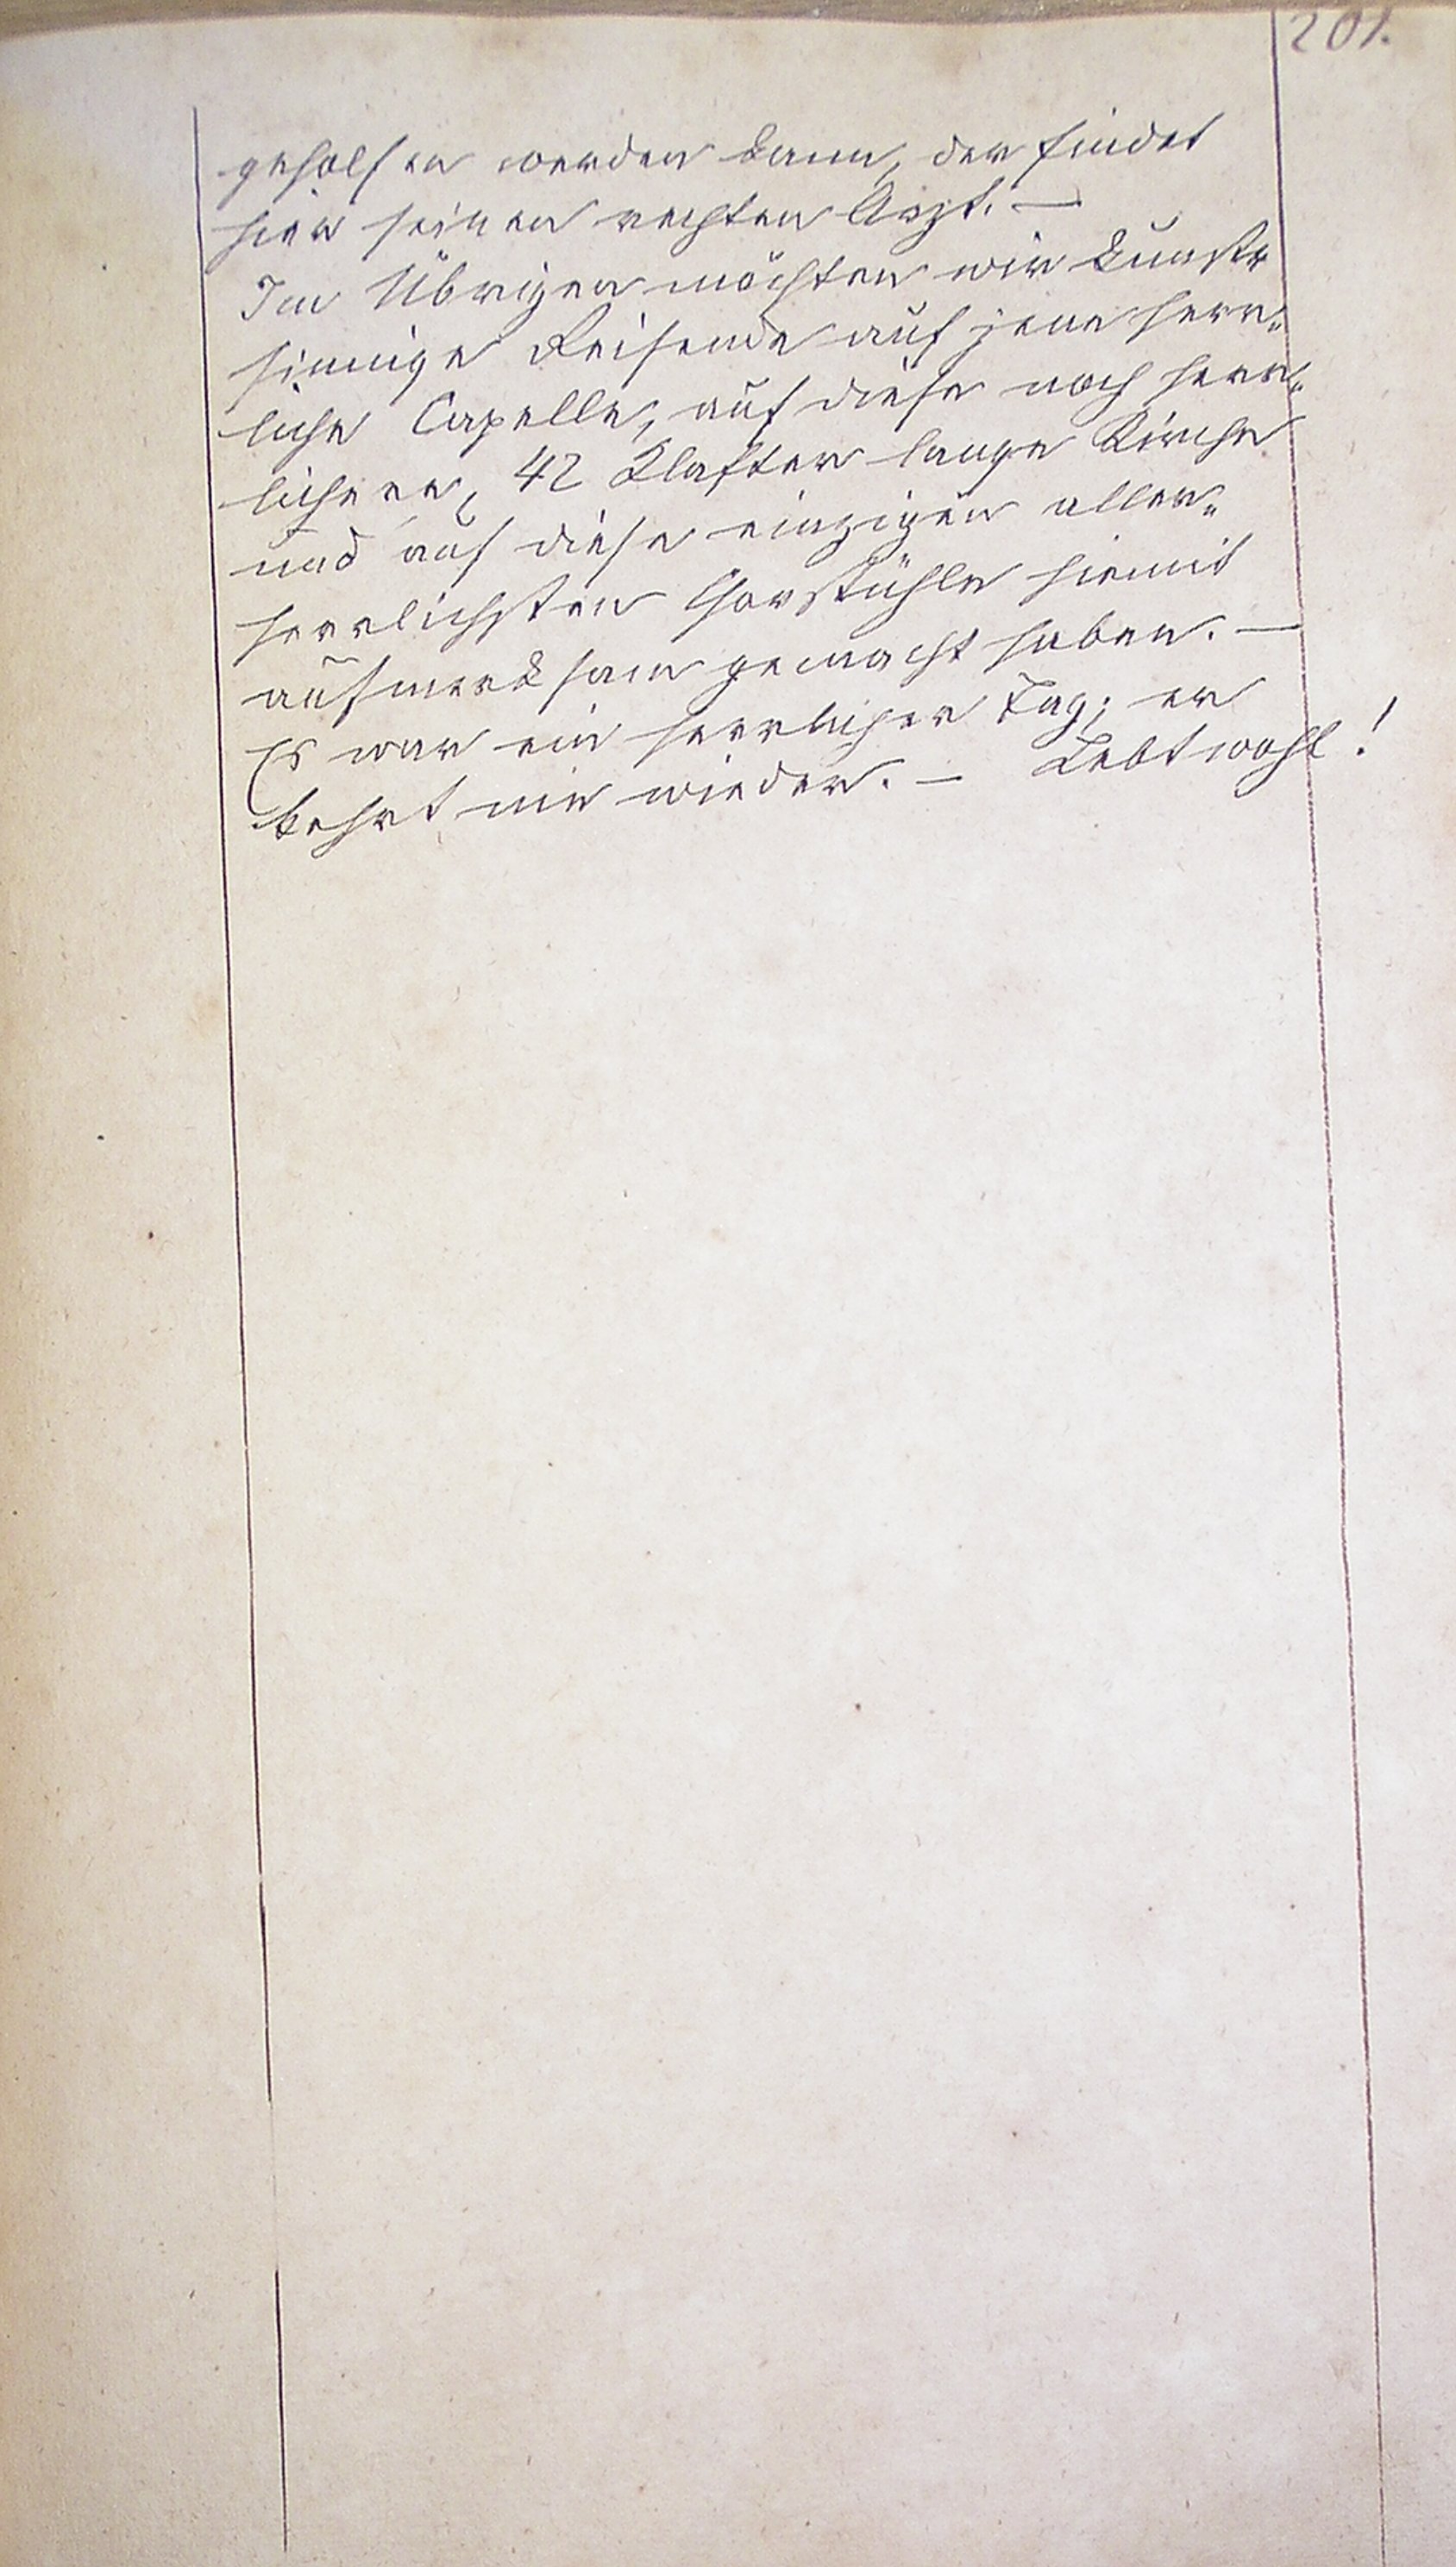 201.
geholfen werden kann, der findet
hier seinen rechten Arzt. —
Im Übrigen möchten wir kunst-
sinnige Reisende auf jene herr-
liche Capelle, auf diese noch herr-
lichere, 42 Klafter lange Kirche
und auf diese einzigen aller-
herrlichsten Chorstühle hiemit
aufmerksam gemacht haben. —
Es war ein herrlicher Tag; er
kehrt nie wieder. — Lebt wohl!